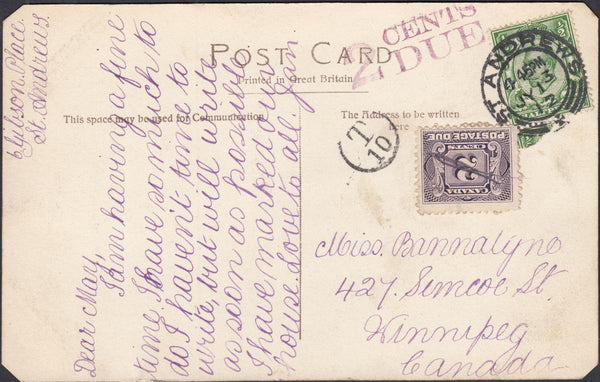 POST CARD
Printed in Great Britain.
This space may be used for Communication.
The Address to be written
here
2 CENTS
DUE
ST ANDREWS
4.45PM
JY 13
12
T
10
POSTAGE DUE
2
CENTS
6 Gibson Place
St. Andrews
Dear May,
I am having a fine
time. I have so much to
do I haven't time to
write, but will write
as soon as possible
I have marked our
house Love to all Jean
Miss. Bannatyne
427 Simcoe St.
Winnipeg
Canada